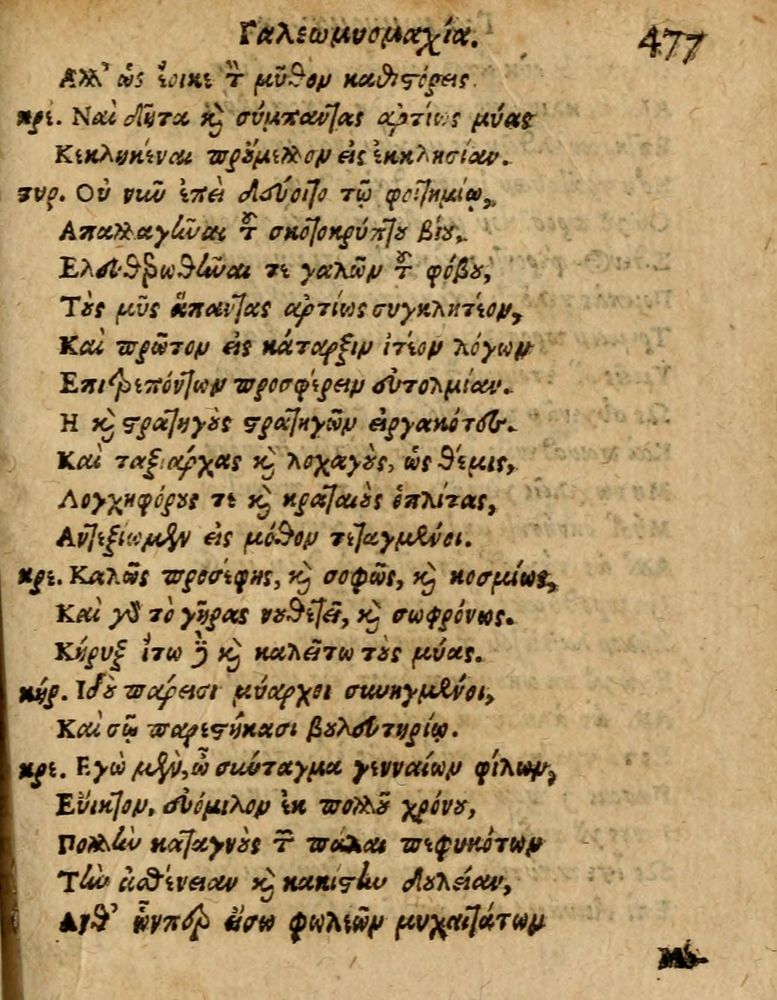 Γαλεωμυομαχία. 477
Αλλ' ὡς ἔοικε τὸν μῦθον καθιστόρεις.
κρε. Ναὶ δῆτα καὶ σύμπαντας ἀρτίως μύας
Κεκληκέναι πρὔμελλον εἰς ἐκκλησίαν.
τυρ. Οὐ νοῦν ἐπεὶ δεύοιτο τῷ φοιτημίῳ,
Απαλλαγῶναι τοῦ σκοτοκρύπτου βίου,
Ελευθερωθῶναι τε γαλῶν τοῦ φόβου,
Τοὺς μῦς ἅπαντας ἀρτίως συγκλητέον,
Καὶ πρῶτον εἰς κάταρξιν ἰτέον λόγων
Επιτρεπόντων προσφέρειν εὐτολμίαν.
Η καὶ στρατηγοὺς στρατηγῶν εἰργακότες.
Καὶ ταξιάρχας καὶ λοχαγοὺς, ὡς θέμις,
Λογχηφόρους τε καὶ κραταιοὺς ὁπλίτας,
Αντεξίωμεν εἰς μόθον τεταγμένοι.
κρε. Καλῶς προσέφης, καὶ σοφῶς, καὶ κοσμίως,
Καὶ γὰρ τὸ γῆρας νουθετεῖ, καὶ σωφρόνως.
Κήρυξ ἴτω δὲ καὶ καλείτω τοὺς μύας.
κήρ. Ιδοὺ πάρεισι μύαρχοι συνηγμένοι,
Καὶ σῷ παρεστήκασι βουλευτηρίῳ.
κρε. Εγὼ μὲν, ὦ σύνταγμα γενναίων φίλων,
Εὔικτον, εὐόμιλον ἐκ πολλοῦ χρόνου,
Πολλὴν καταγνοὺς τῶν πάλαι πεφυκότων
Τὴν ἀσθένειαν καὶ κακίστην δουλείαν,
Ανθ' ὧνπερ εἴσω φωλεῶν μυχαιτάτων